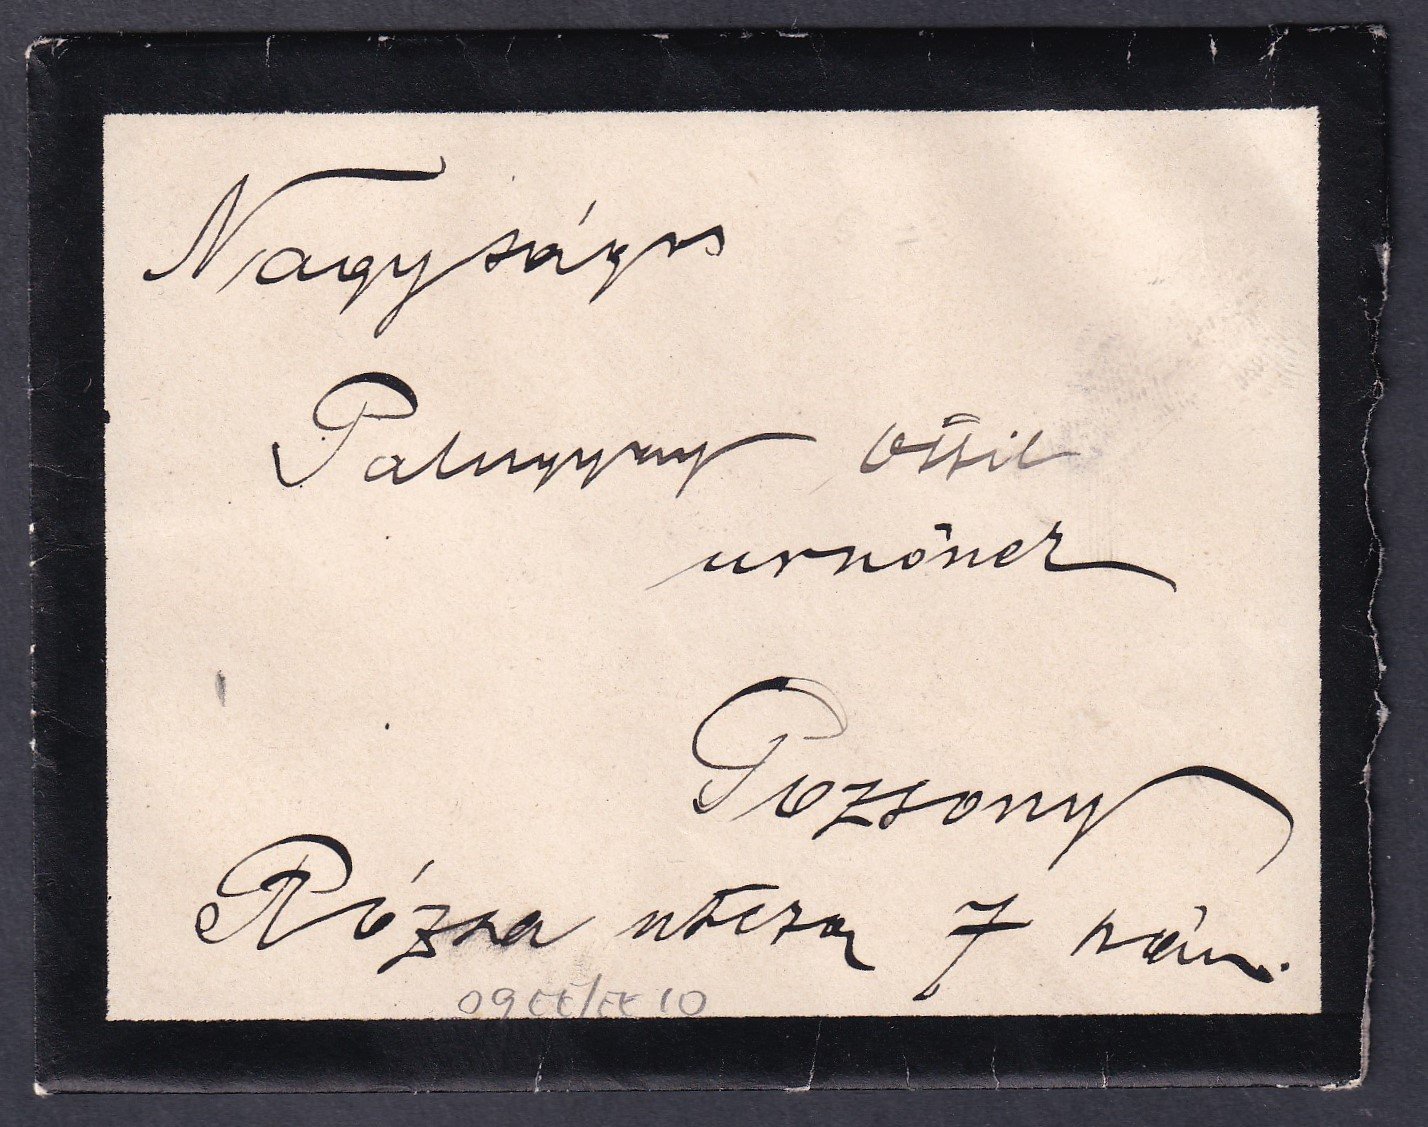 Nagyságos
Palugyay Ottil
urnőnek
Pozsony
Rózsa utcza 7 szám.